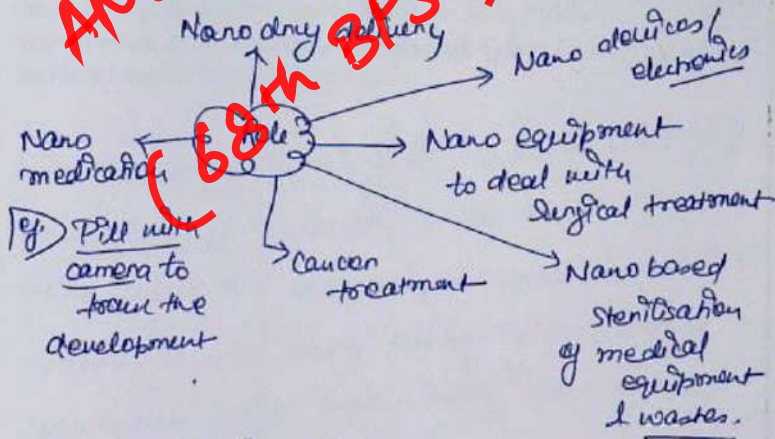 Nano drug delivery
Nano devices/
electronics
Nano
medication
Role
Nano equipment
to deal with
Surgical treatment
(68th BPS
eg. Pill with
camera to
track the
development
Cancer
treatment
Nano based
Sterilisation
of medical
equipment
& wastes.